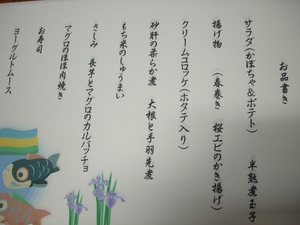 お品書き
サラダ(かぼちゃ&ポテト) 半熟煮玉子
揚げ物 (春巻き 桜エビのかき揚げ)
クリームコロッケ(ホタテ入り)
砂肝の柔らか煮 大根と手羽先煮
もち米のしゅうまい
さしみ 長芋とマグロのカルパッチョ
マグロのほほ肉焼き
お寿司
ヨーグルトムース